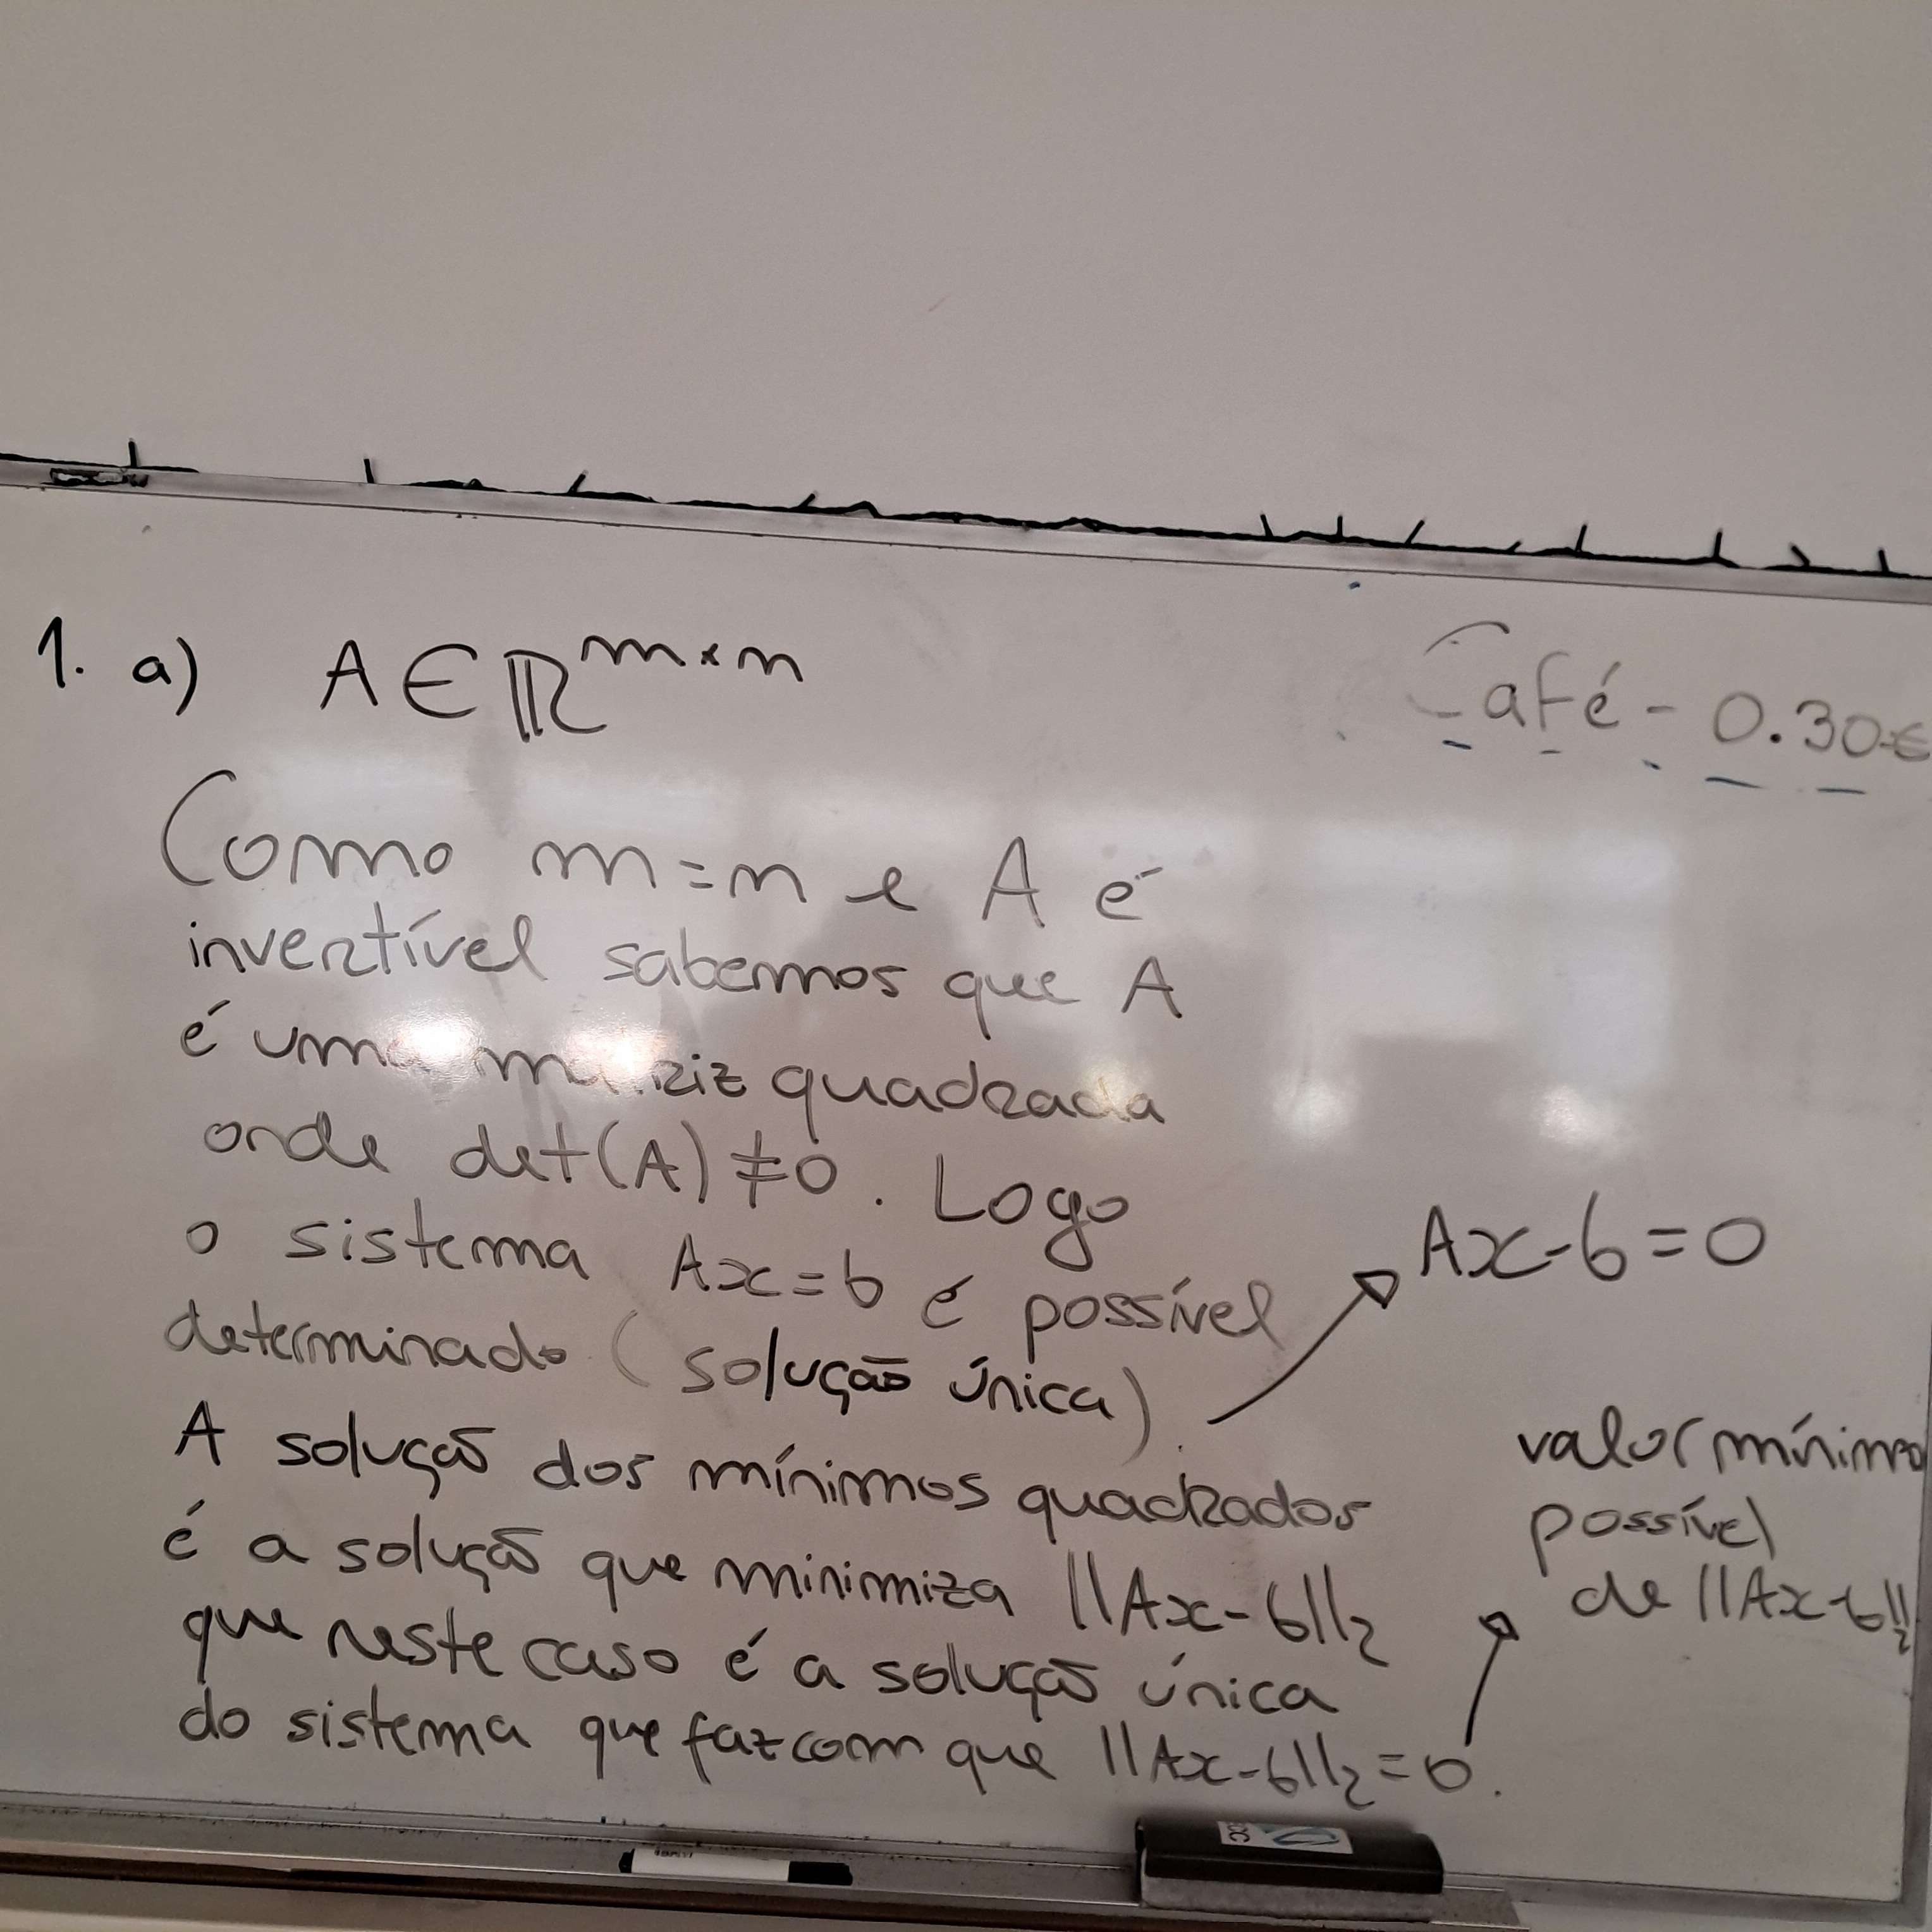 1. a) A ∈ ℝ^{m×n}
Café - 0.30€
Como m=n e A é
invertível sabemos que A
é uma matriz quadrada
onde det(A)≠0. Logo
o sistema Ax=b é possível
determinado (solução única).
Ax-b=0
A solução dos mínimos quadrados
é a solução que minimiza ||Ax-b||₂
que neste caso é a solução única
do sistema que faz com que ||Ax-b||₂=0.
valor mínimo
possível
de ||Ax-b||₂